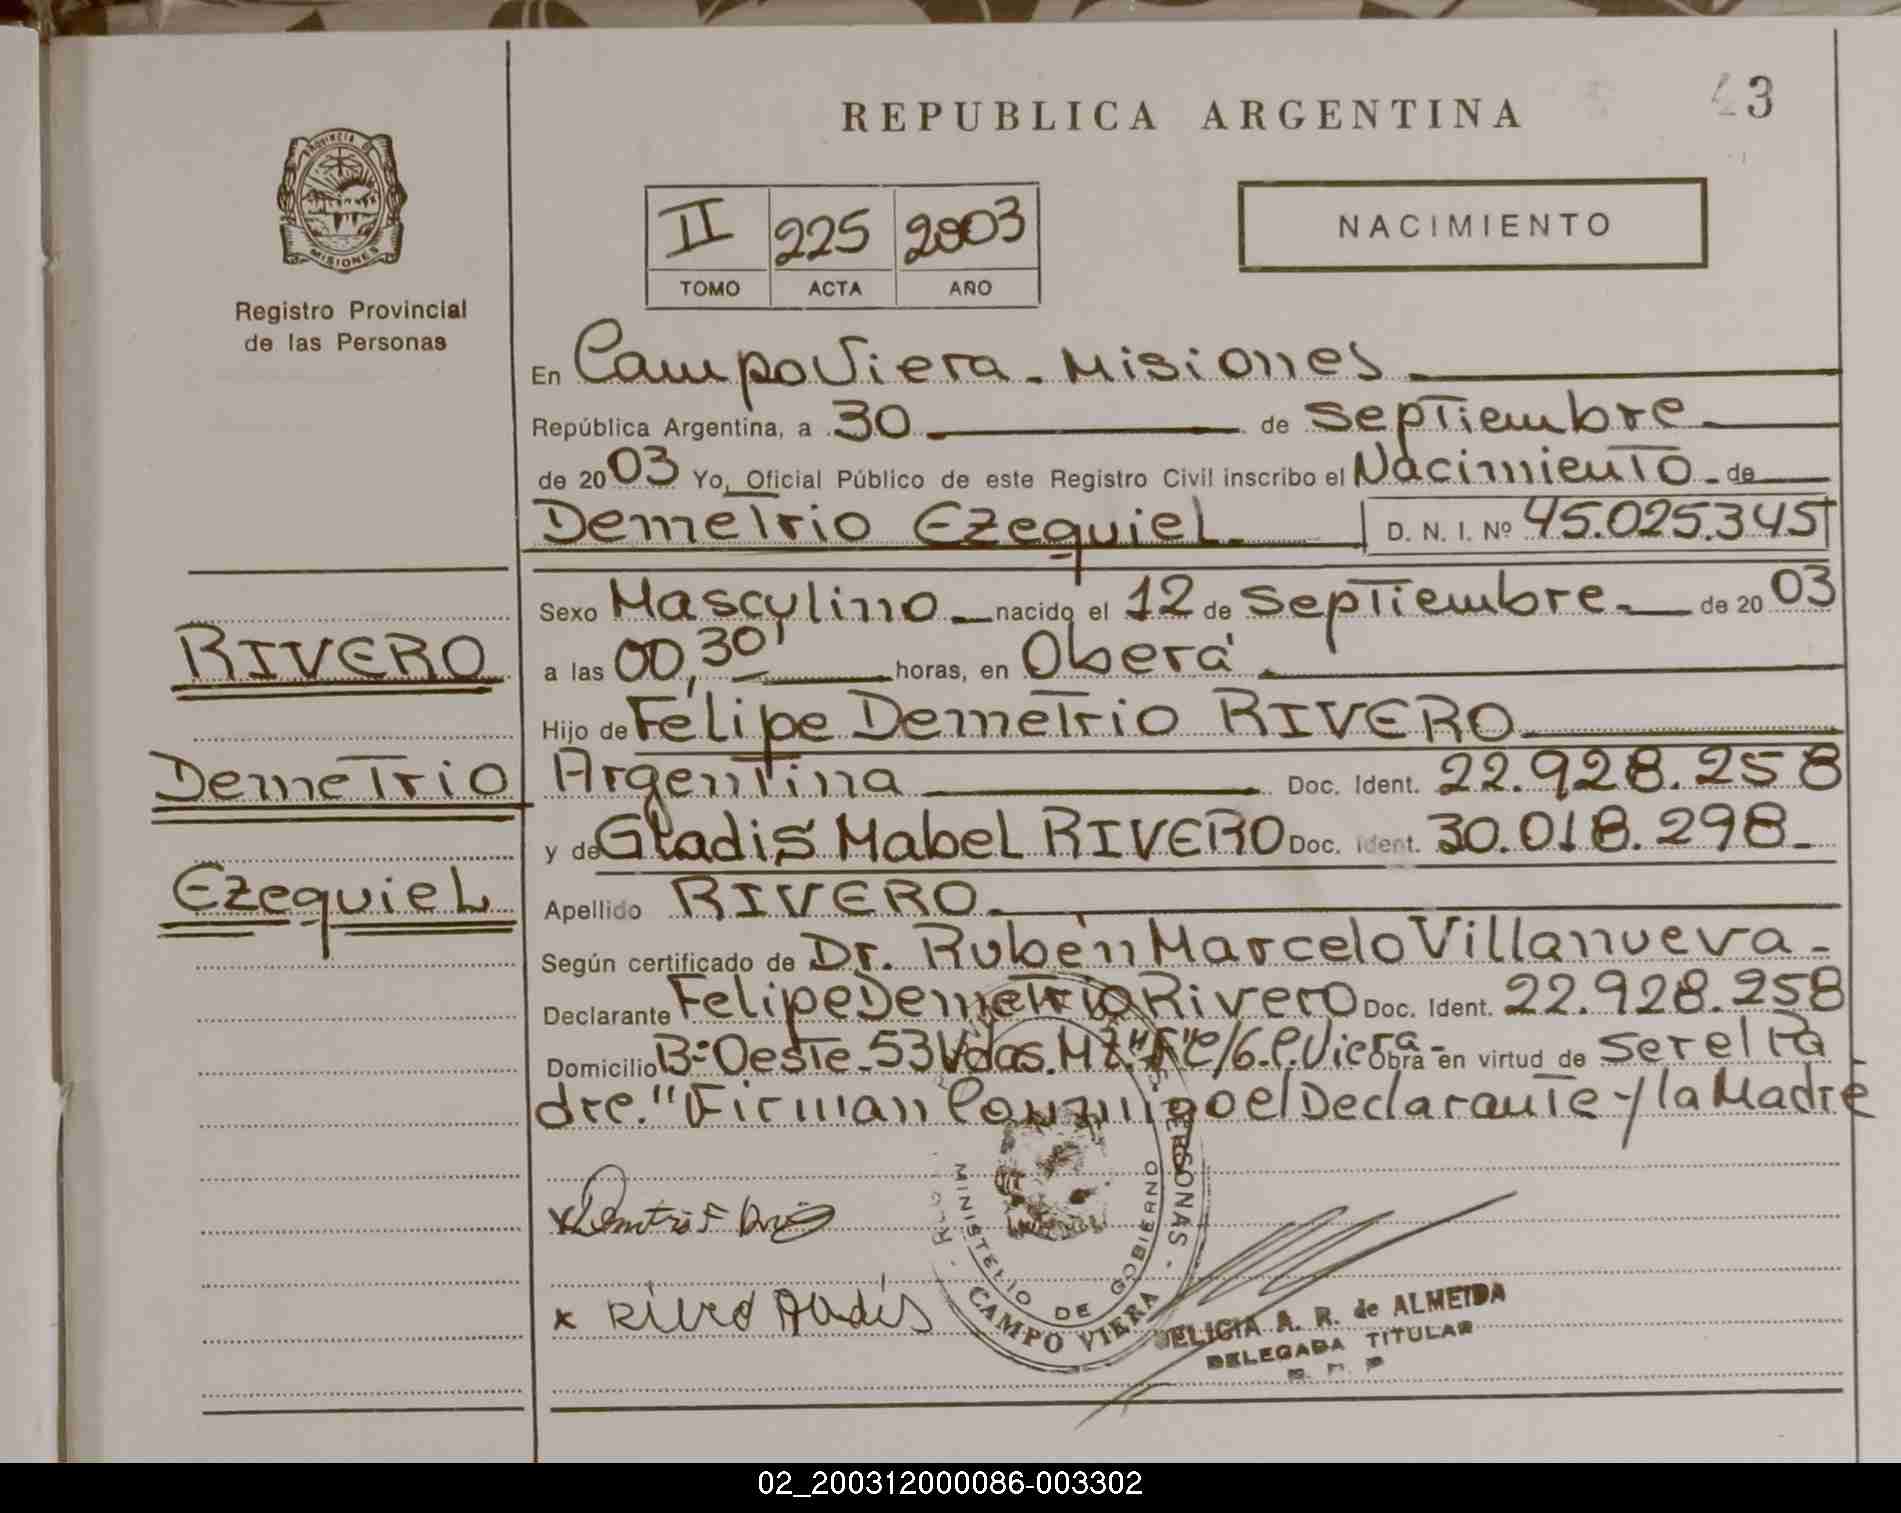 REPUBLICA ARGENTINA
43
PROVINCIA DE
MISIONES
Registro Provincial
de las Personas
II 225 2003
TOMO ACTA AÑO
NACIMIENTO
En Campo Viera - Misiones
República Argentina, a 30 de Septiembre
de 2003 Yo, Oficial Público de este Registro Civil inscribo el Nacimiento de
Demetrio Ezequiel D. N. I. Nº 45.025.345
Sexo Masculino nacido el 12 de Septiembre de 2003
a las 00,30' horas, en Oberá
Hijo de Felipe Demetrio RIVERO
Argentina Doc. Ident. 22.928.258
y de Gladis Mabel RIVERO Doc. Ident. 30.018.298
Apellido RIVERO
Según certificado de Dr. Rubén Marcelo Villanueva
Declarante Felipe Demetrio Rivero Doc. Ident. 22.928.258
Domicilio Bº Oeste - 53 Vdas. Mz. C/6 - C. Viera - Obra en virtud de ser el Pa
dre." Firman Conmigo el Declarante y la Madre
RIVERO
Demetrio
Ezequiel
PERSONAS
MINISTERIO DE GOBIERNO
CAMPO VIERA
x Rivero Gladis
DELICIA A. R. de ALMEIDA
DELEGADA TITULAR
02_200312000086-003302